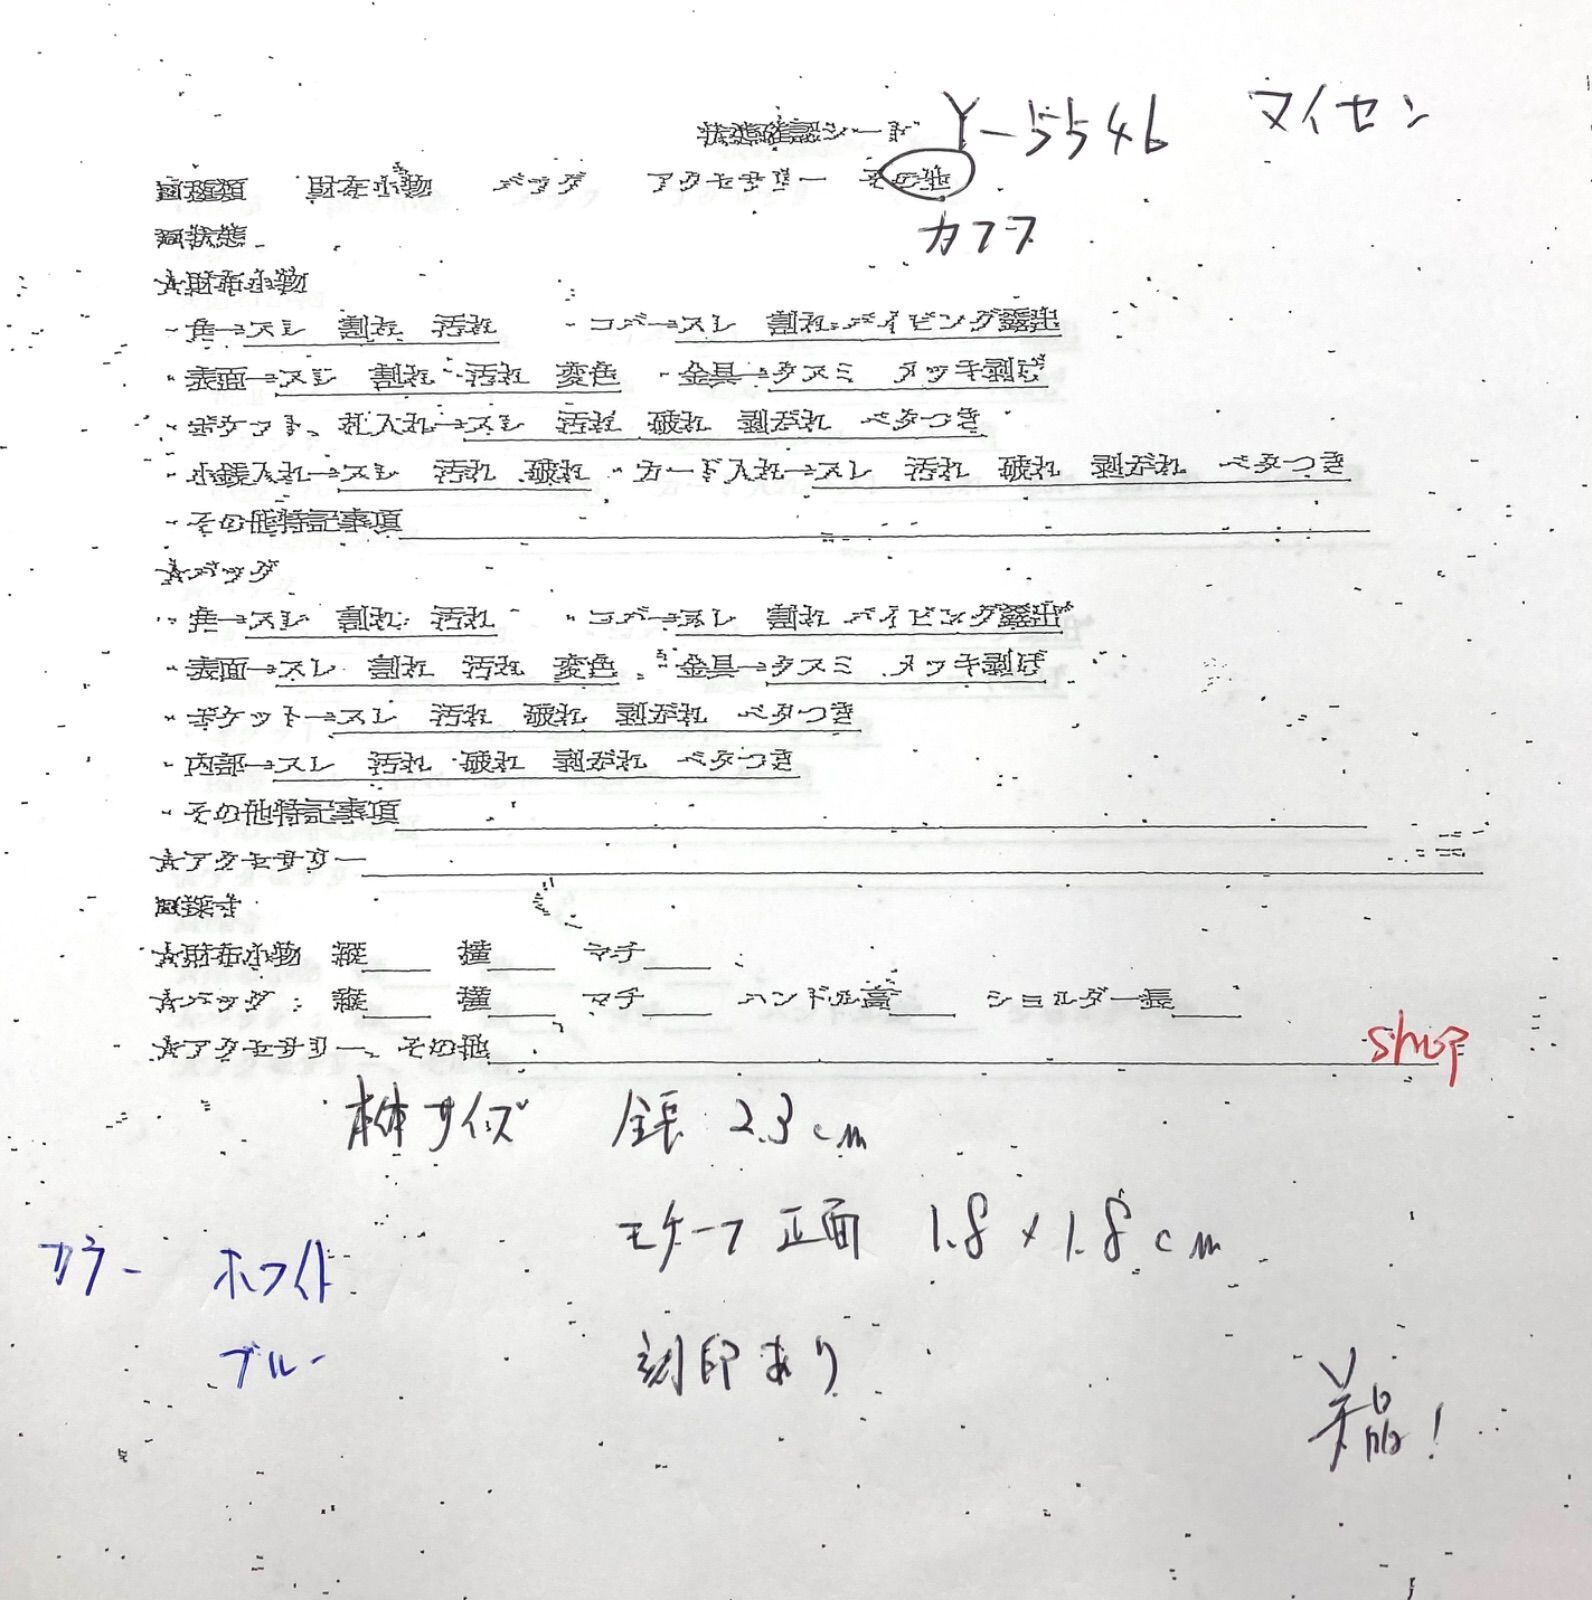 状態確認シート Y-5546 マイセン
■種類 財布小物 バッグ アクセサリー その他
カフス
■状態
★財布小物
・角→スレ 割れ 汚れ ・コバ→スレ 割れ パイピング露出
・表面→スレ 割れ 汚れ 変色 ・金具→クスミ メッキ剥げ
・ポケット、札入れ→スレ 汚れ 破れ 剥がれ ベタつき
・小銭入れ→スレ 汚れ 破れ ・カード入れ→スレ 汚れ 破れ 剥がれ ベタつき
・その他特記事項
★バッグ
・角→スレ 割れ 汚れ ・コバ→スレ 割れ パイピング露出
・表面→スレ 割れ 汚れ 変色 ・金具→クスミ メッキ剥げ
・ポケット→スレ 汚れ 破れ 剥がれ ベタつき
・内部→スレ 汚れ 破れ 剥がれ ベタつき
・その他特記事項
★アクセサリー
■採寸
★財布小物 縦 横 マチ
★バッグ 縦 横 マチ ハンドル高 ショルダー長
★アクセサリー、その他
shop
本体サイズ 全長 2.3cm
モチーフ正面 1.8×1.8cm
カラー ホワイト
ブルー 刻印あり
美品！